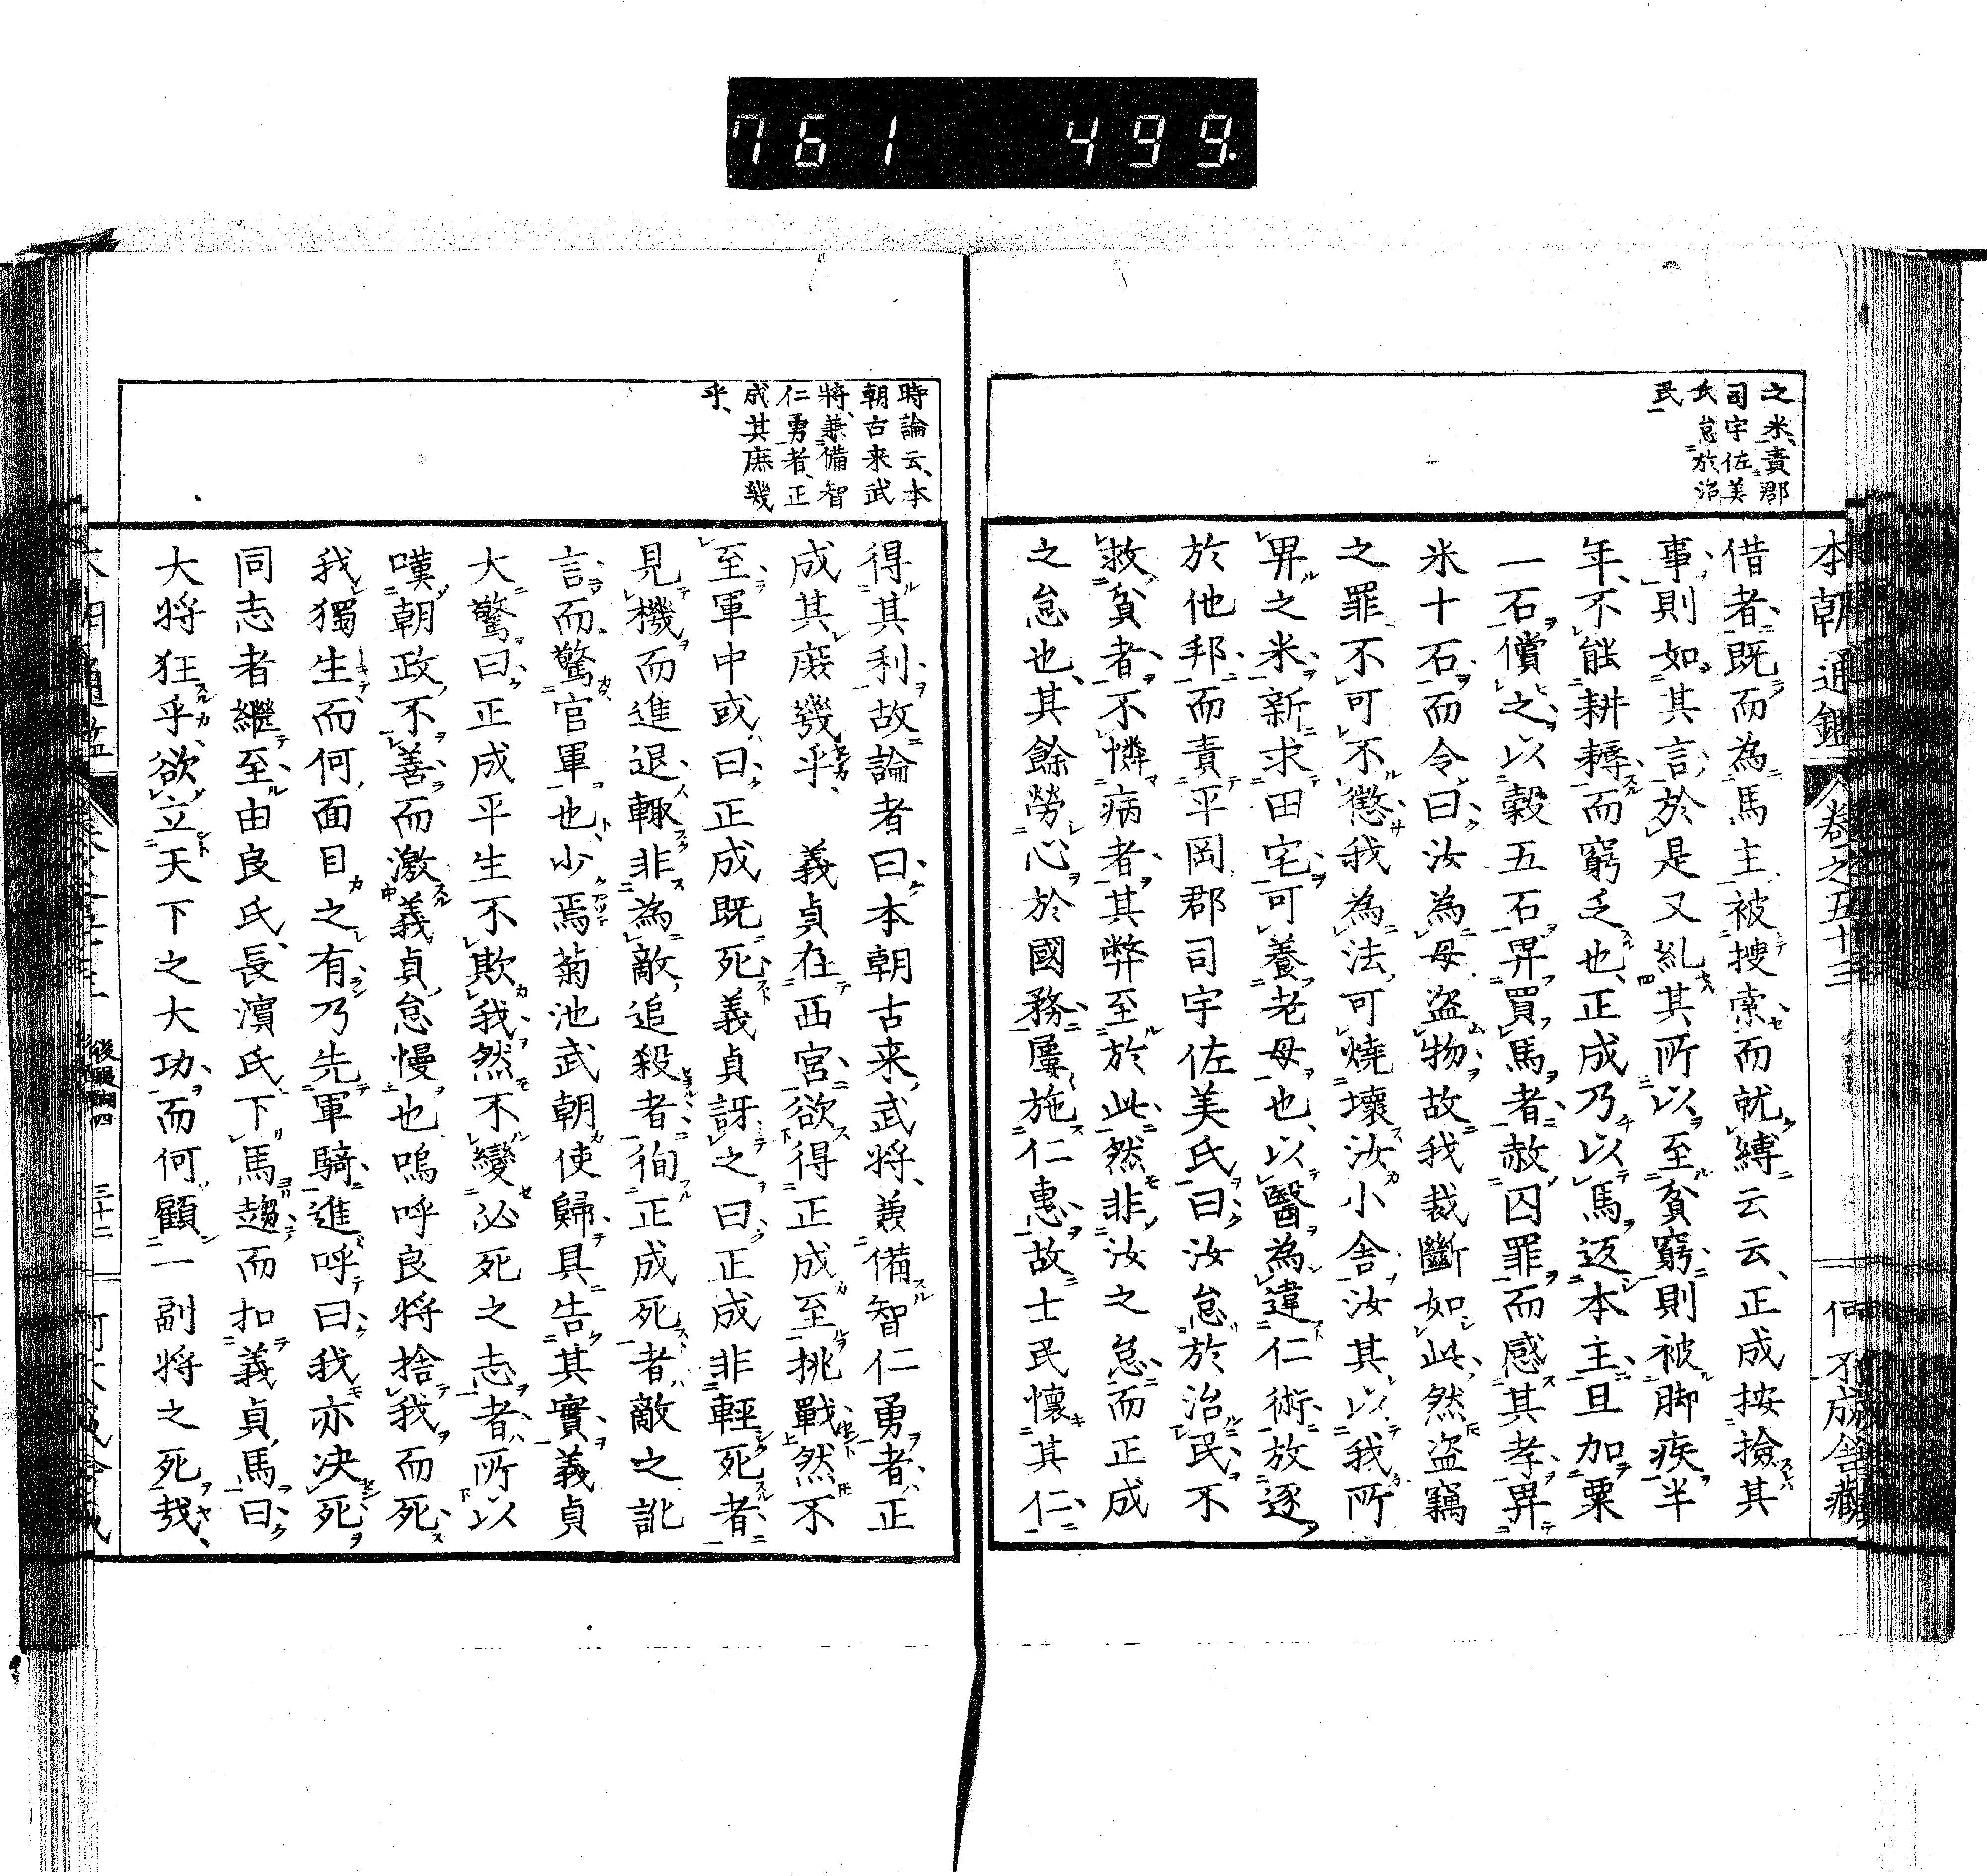 761 499.
本朝通鑑 卷之五十三 何不成舍藏
之米、責郡
司宇佐美
氏怠於治
民
借者、既而為馬主被搜索而就縛云云、正成按撿其
事、則如其言、於是又糺其所以至貧窮、則被脚疾半
年、不能耕耨而窮乏也、正成乃以馬返本主、且加粟
一石償之、以穀五石畀買馬者、赦囚罪而感其孝、畀
米十石、而令曰、汝為母盗物、故我裁斷如此、然盗竊
之罪、不可不懲、我為法、可燒壞汝小舍、汝其以我所
畀之米、新求田宅、可養老母也、以醫為違仁術、放逐
於他邦、而責平岡郡司宇佐美氏曰、汝怠於治民、不
救貧者、不憐病者、其弊至於此、然非汝之怠、而正成
之怠也、其餘勞心於國務、屢施仁惠、故士民懷其仁、
時論云、本
朝古来武
將、兼備智
仁勇者、正
成其庶幾
乎、
得其利、故論者曰、本朝古来、武将、兼備智仁勇者、正
成其庶幾乎、　義貞在西宮、欲得正成至挑戰、然不
至軍中、或曰、正成既死、義貞訝之曰、正成非輕死者、
見機而進退、輙非為敵追殺者、徇正成死者、敵之訛
言、而驚官軍也、少焉菊池武朝使歸、具告其實、義貞
大驚曰、正成平生不欺我、然不變必死之志者、所以
嘆朝政不善、而激義貞怠慢也、嗚呼良将捨我而死、
我獨生而何面目之有、乃先軍騎進呼曰、我亦決死、
同志者繼至、由良氏、長濱氏、下馬趨而扣義貞馬曰、
大将狂乎、欲立天下之大功、而何顧一副将之死哉、
後醍醐四 三十二